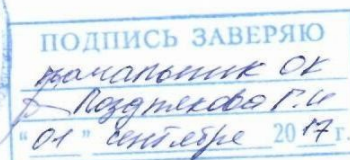 ПОДПИСЬ ЗАВЕРЯЮ
Начальник ОК
Позднякова Г.И
"01" сентября 2017 г.